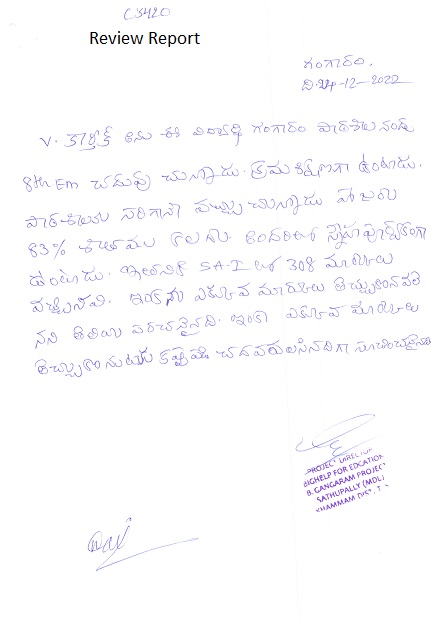 CS420
Review Report
గంగారం.
ది.24-12-2022
V. కార్తీక్ అను ఈ విద్యార్థి గంగారం పాఠశాల నందు
8th Em చదువు చున్నాడు. క్రమశిక్షణగా ఉంటాడు.
పాఠశాలకు సరిగానే వచ్చు చున్నాడు హాజరు
83% శాతము కలదు. అందరితో స్నేహపూర్వకంగా
ఉంటాడు. ఇతనికి SA-I లో 308 మార్కులు
వచ్చినవి. ఇంకను ఎక్కువ మార్కులు తెచ్చుకోవలె
నని తెలియ పరచనైనది. ఇంకా ఎక్కువ మార్కులు
తెచ్చుకొనుటకు కష్టపడి చదవవలసినదిగా సూచించనైనది
PROJECT DIRECTOR
BIGHELP FOR EDCATION
B. GANGARAM PROJECT
SATHUPALLY (MDL)
KHAMMAM DIST.